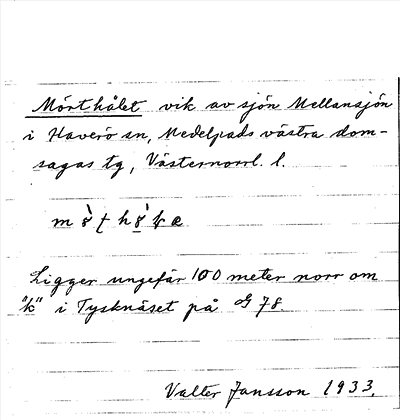 Mörthålet vik av sjön Mellansjön
i Haverö sn, Medelpads västra dom-
sagas tg, Västernorrl. l.
Ligger ungefär 100 meter norr om
"k" i Tysknäset på G 78.
Valter Jansson 1933.